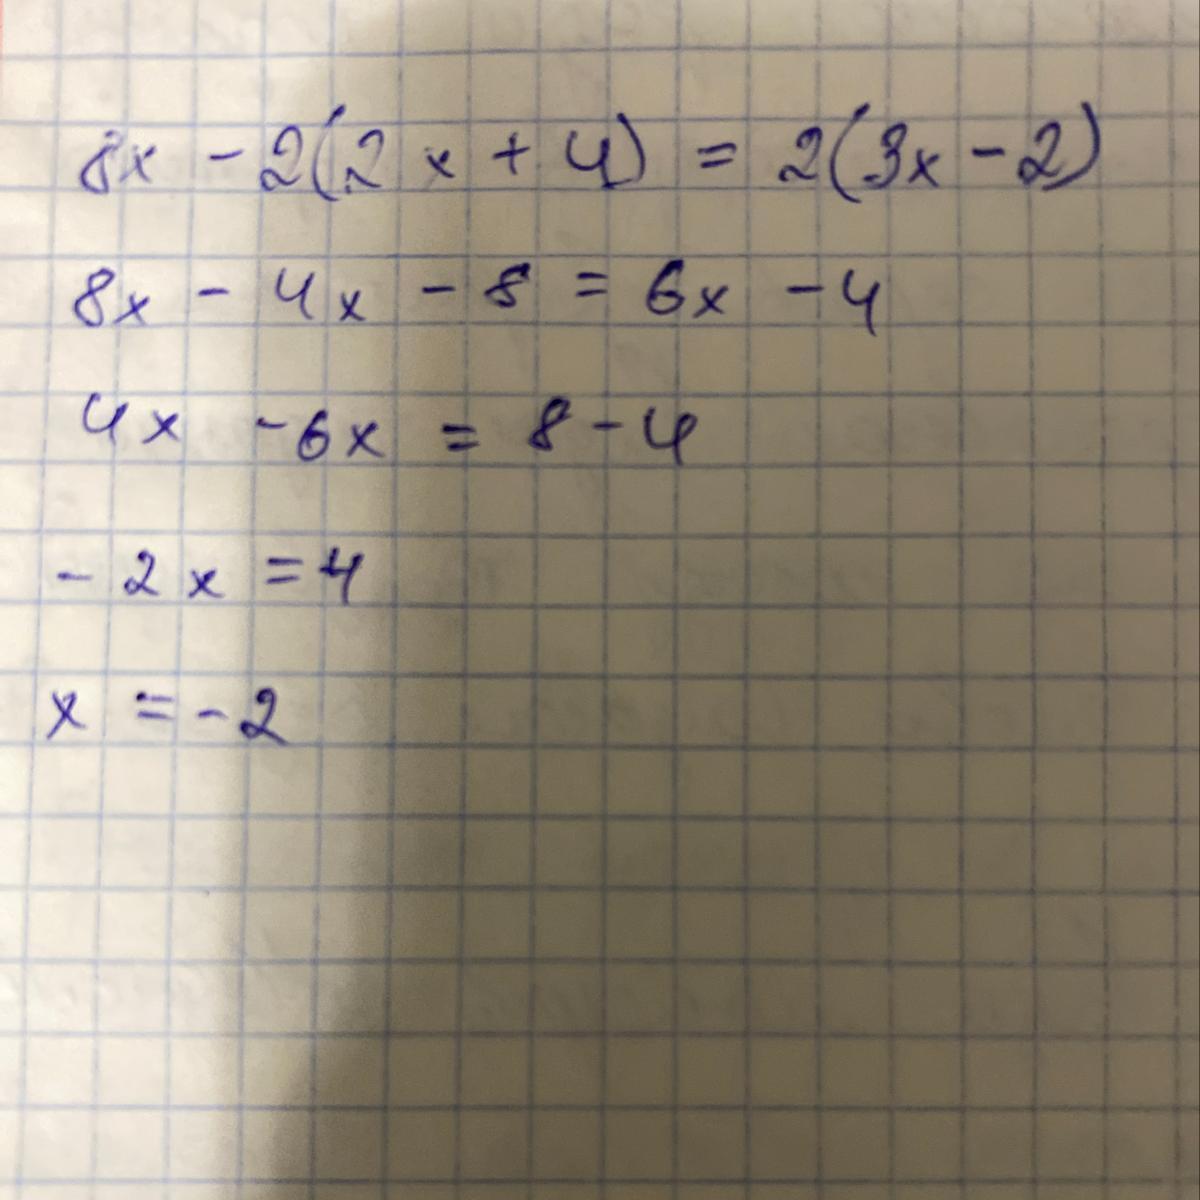 8x - 2(2x + 4) = 2(3x - 2)
8x - 4x - 8 = 6x - 4
4x - 6x = 8 - 4
- 2x = 4
x = - 2